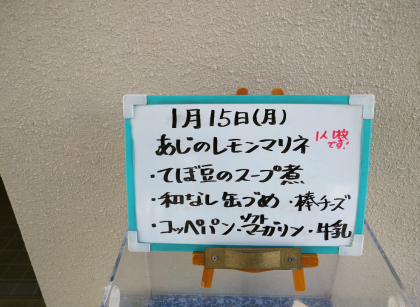 1月15日(月)
あじのレモンマリネ
1人1袋
です!
・てぼ豆のスープ煮
・和なし缶づめ・棒チーズ
・コッペパン・ソフトマーガリン・牛乳